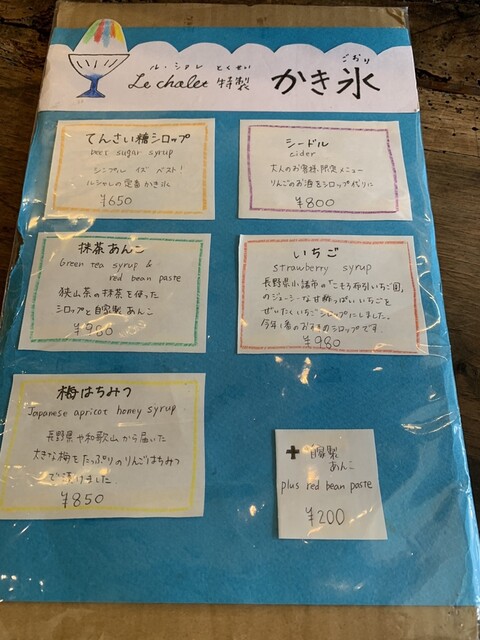 ル・シャレ とくせい
Le chalet 特製
ごおり
かき氷
てんさい糖シロップ
beet sugar syrup
シンプル イズ ベスト!
ルシャレの定番かき氷
¥650
シードル
cider
大人のお客様限定メニュー
りんごのお酒をシロップ代りに
¥800
抹茶あんこ
Green tea syrup &
red bean paste
狭山茶の抹茶を使った
シロップと自家製あんこ
いちご
strawberry syrup
長野県小諸市の「こもろ布引いちご園」
のジューシーな甘酸っぱいいちごを
ぜいたくいちごシロップにしました。
今年1番のおすすめシロップです。
¥980
梅はちみつ
Japanese apricot honey syrup
長野県や和歌山から届いた
大きな梅をたっぷりのりんごはちみつ
で漬けました。
¥850
+ 自家製
あんこ
plus red bean paste
¥200